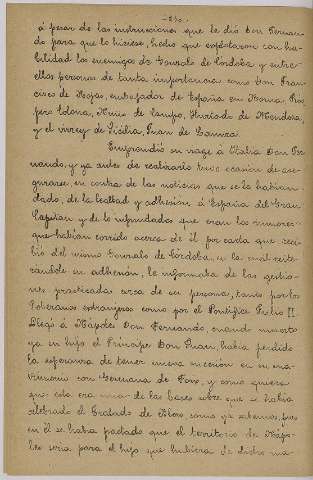 á pesar de las instrucciones que le dió Don Fernan-
do para que lo hiciese, hecho que explotaron con ha-
bilidad los enemigos de Gonzalo de Córdoba y entre
ellos personas de tanta importancia como Don Fran-
cisco de Rojas, embajador de España en Roma, Pros-
pero Colona, Nuño de Campo, Hurtado de Mendoza,
y el virrey de Sicilia Juan de Lanuza.
Emprendió su viage á Italia Don Fer-
nando, y ya antes de realizarlo tuvo ocasion de ase-
gurarse, en contra de las noticias que se le habian
dado, de la lealtad y adhesión á España del Gran
Capitan y de lo infundados que eran los rumores
que habian corrido acerca de él por carta que reci-
bió del mismo Gonzalo de Córdoba, en la cual reite-
randole su adhesión, le informaba de las gestio-
nes practicadas cerca de su persona, tanto por los
Soberanos extranjeros como por el Pontífice Julio II.
Llegó á Napoles Don Fernando, cuando muerto
ya su hijo el Príncipe Don Juan, habia perdido
la esperanza de tener nueva sucesión en su ma-
trimonio con Germana de Foix, y como quiera
que esta era una de las bases sobre que se habia
celebrado el Tratado de Blois, como ya sabemos, pues
en él se habia pactado que el territorio de Nápo-
les seria para el hijo que hubiera de dicho ma-